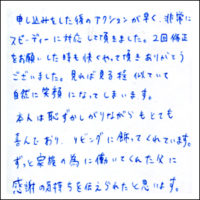 申し込みをした後のアクションが早く、非常に
スピーディーに対応して頂きました。2回修正
をお願いした時も快くやって頂きありがとう
ございました。見れば見る程似ていて
自然に笑顔になってしまいます。
本人は恥ずかしがりながらもとても
喜んでおり、リビングに飾ってくれています。
ずっと家族の為に働いてくれた父に
感謝の気持ちを伝えられたと思います。